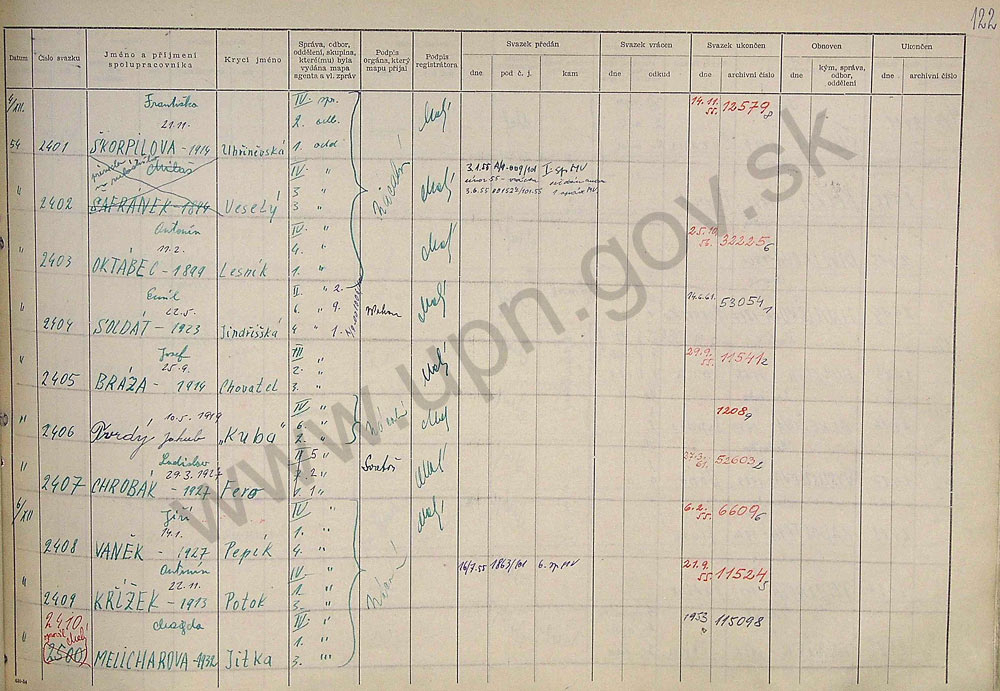 122
Datum
Číslo svazku
Jméno a příjmení spolupracovníka
Krycí jméno
Správa, odbor, oddělení, skupina, které(mu) byla vydána mapa agenta a vl. zpráv
Podpis orgána, který mapu přijal
Podpis registrátora
Svazek předán
dne
pod č. j.
kam
Svazek vrácen
dne
odkud
Svazek ukončen
dne
archivní číslo
Obnoven
dne
kým, správa, odbor, oddělení
Ukončen
dne
archivní číslo
4/XII.
Františka
IV. sp.
Malý
14.11. 55. 12579 8
21.11.
2. odb.
54 2401 ŠKORPILOVA - 1914 Uhříněvská 1. odd.
Miloš
IV. "
Malý
3.1.55 A/1-009/101 I sp MV
" 3 "
3.6.55
2402 ŠAFRÁNEK - 1914 Veselý 3 "
Antonín
IV. "
Malý
25.10. 56. 32225 6
" 19.2. 4. "
2403 OKTÁBEC - 1899 Lesník 1. "
Emil
II. " 2.
Malý
14.6.61. 53054 1
" 22.5. 6. " 9.
2404 SOLDÁT - 1923 Jindřišská 4 " 1.
Josef
III "
Malý
29.9. 55. 11541 2
" 25.9. 2. "
2405 BRÁZA - 1914 Chovatel 3. "
10.5.1919
IV "
Malý
1208 9
" 6. "
2406 Tvrdý Jakub "Kuba" 2. "
Ladislav
II S "
Svatoš
Malý
27.3. 61. 52603 2
" 29.3.1927 2 "
2407 CHROBÁK - 1927 Fero 1 "
6/XII
Jiří
IV "
Malý
6.2. 55. 6609 6
14.1. 1. "
2408 VANĚK - 1927 Pepík 4. "
Antonín
IV. "
16/7.55 1863/101 6. sp MV
21.9. 55 11524 5
" 22.11. 1. "
2409 KŘÍŽEK - 1913 Potok 3. "
2410
Magda
IV "
1953 115098
" Malý 1. "
2500 MELICHAROVA - 1932 Jitka 3. "
www.upn.gov.sk